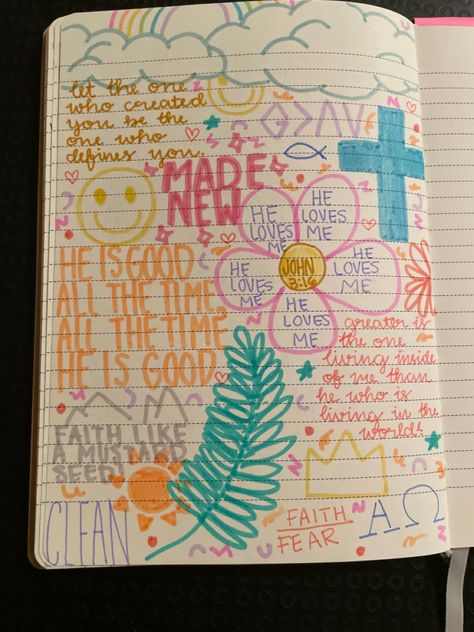 let the one
who created
you be the
one who
defines you
MADE
NEW
HE
LOVES
ME
HE
LOVES
ME
HE
LOVES
ME
HE
LOVES
ME
HE
LOVES
ME
JOHN
3:16
HE IS GOOD
ALL THE TIME
ALL THE TIME
HE IS GOOD
greater is
the one
living inside
of me than
he who is
living in the
world!
FAITH LIKE
A MUSTARD
SEED!
CLEAN
FAITH
FEAR
Α Ω